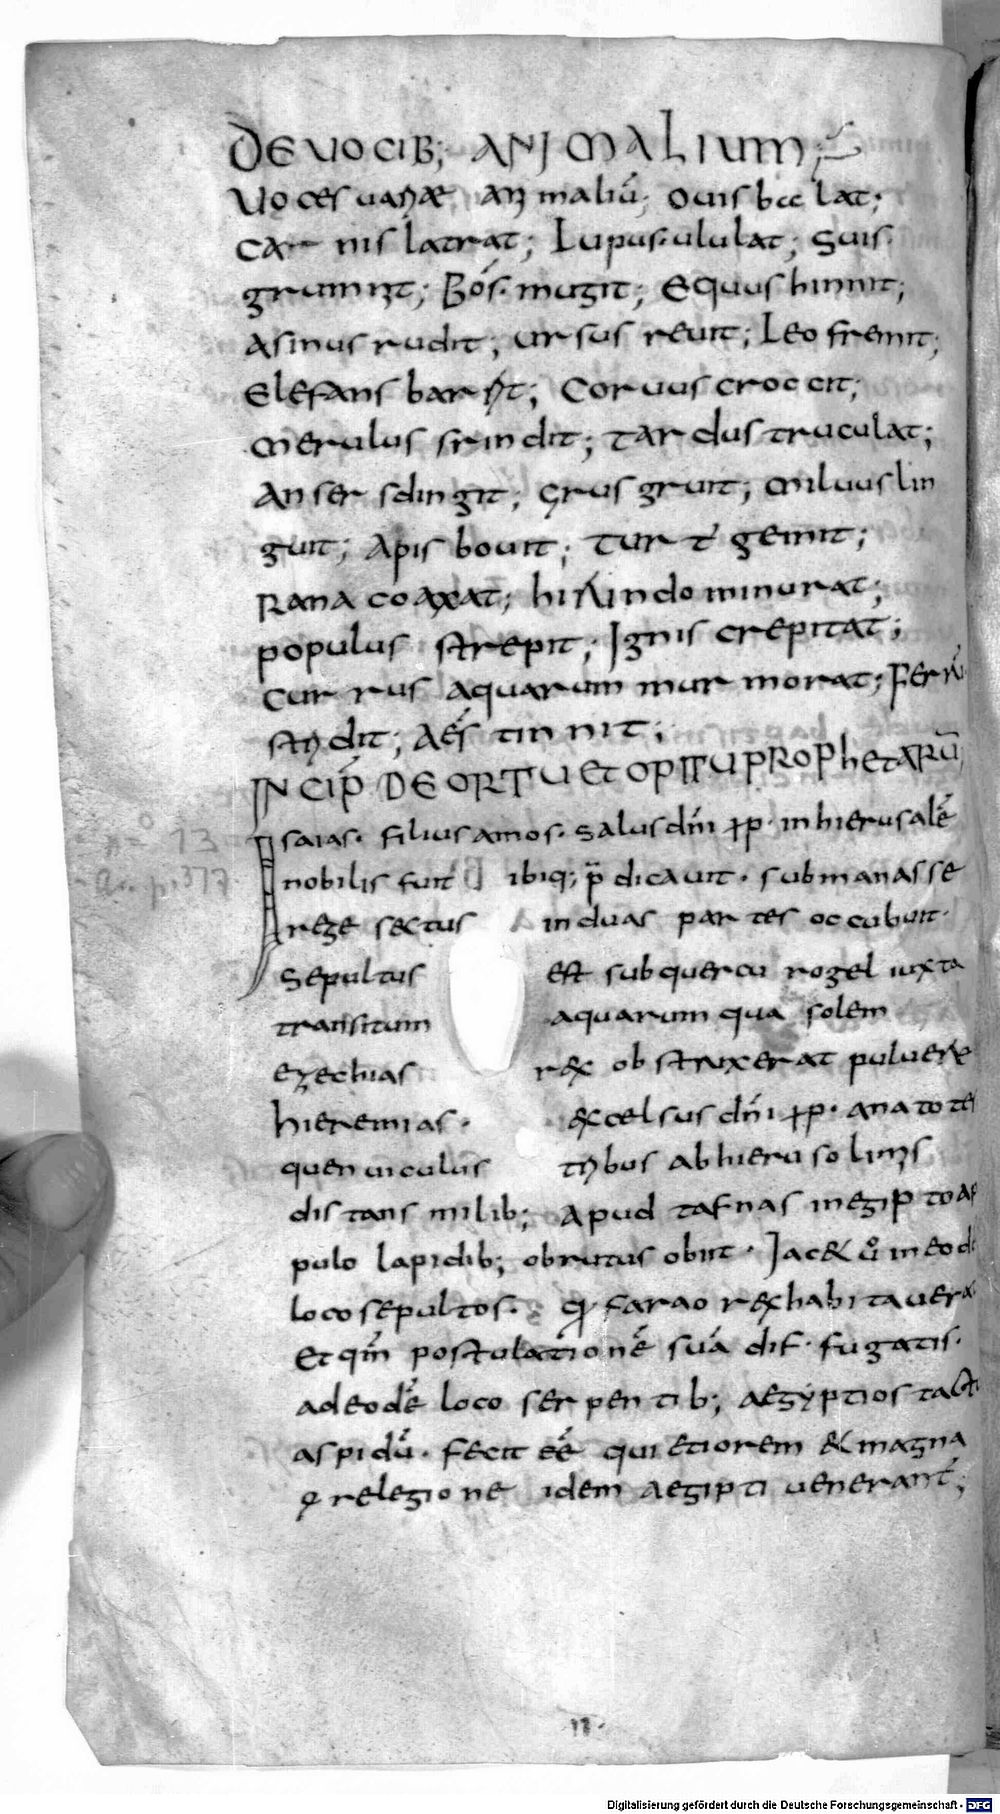 DE VOCIB; ANIMALIUM;
Voces variae animaliū; Ovis beelat;
Canis latrat; Lupus ululat; Suis
grunnit; Bós mugit; Equus hinnit;
Asinus rudit; ursus revit; Leo fremit;
Elefans barrit; Corvus croccit;
Merulus frindit; Tardus truculat;
Anser sclingit; Grus gruit; Milvus lin
guit; Apis bovit; Turt gemit;
Rana coaxat; hirundo minurat;
populus strepit; Ignis crepitat;
Currus aquarum murmorat; Ferrū
stridit; Aes tinnit;
INCIP DE ORTU ET OPITU PROPHETARŪ
Isaias. filius amos. salus dn̄i ꝑp. in hierusalē
nobilis fuit ibiq; p̄dicavit. sub manasse
rege sectus in duas partes occubuit.
Sepultus est sub quercu rogel iuxta
transitum aquarum qua solem
ezechias rex obstruxerat pulvere
hieremias. excelsus dn̄i ꝑp. anatotes
quen viculus tribus ab hierusolimis
distans milib; Apud tafnas in egipto a
pulo lapidib; obrutus obiit. Iacet ů in eode
loco sepultos. farao rex habitavera
Et qm̄ postulationē suā dif. fugatis.
ad eodē loco serpentib; aegyptios tact
aspidū. fecit eē quietiorem et magna
relegione idem aegipti venerant;
n° 13
11.
Digitalisierung gefördert durch die Deutsche Forschungsgemeinschaft - DFG